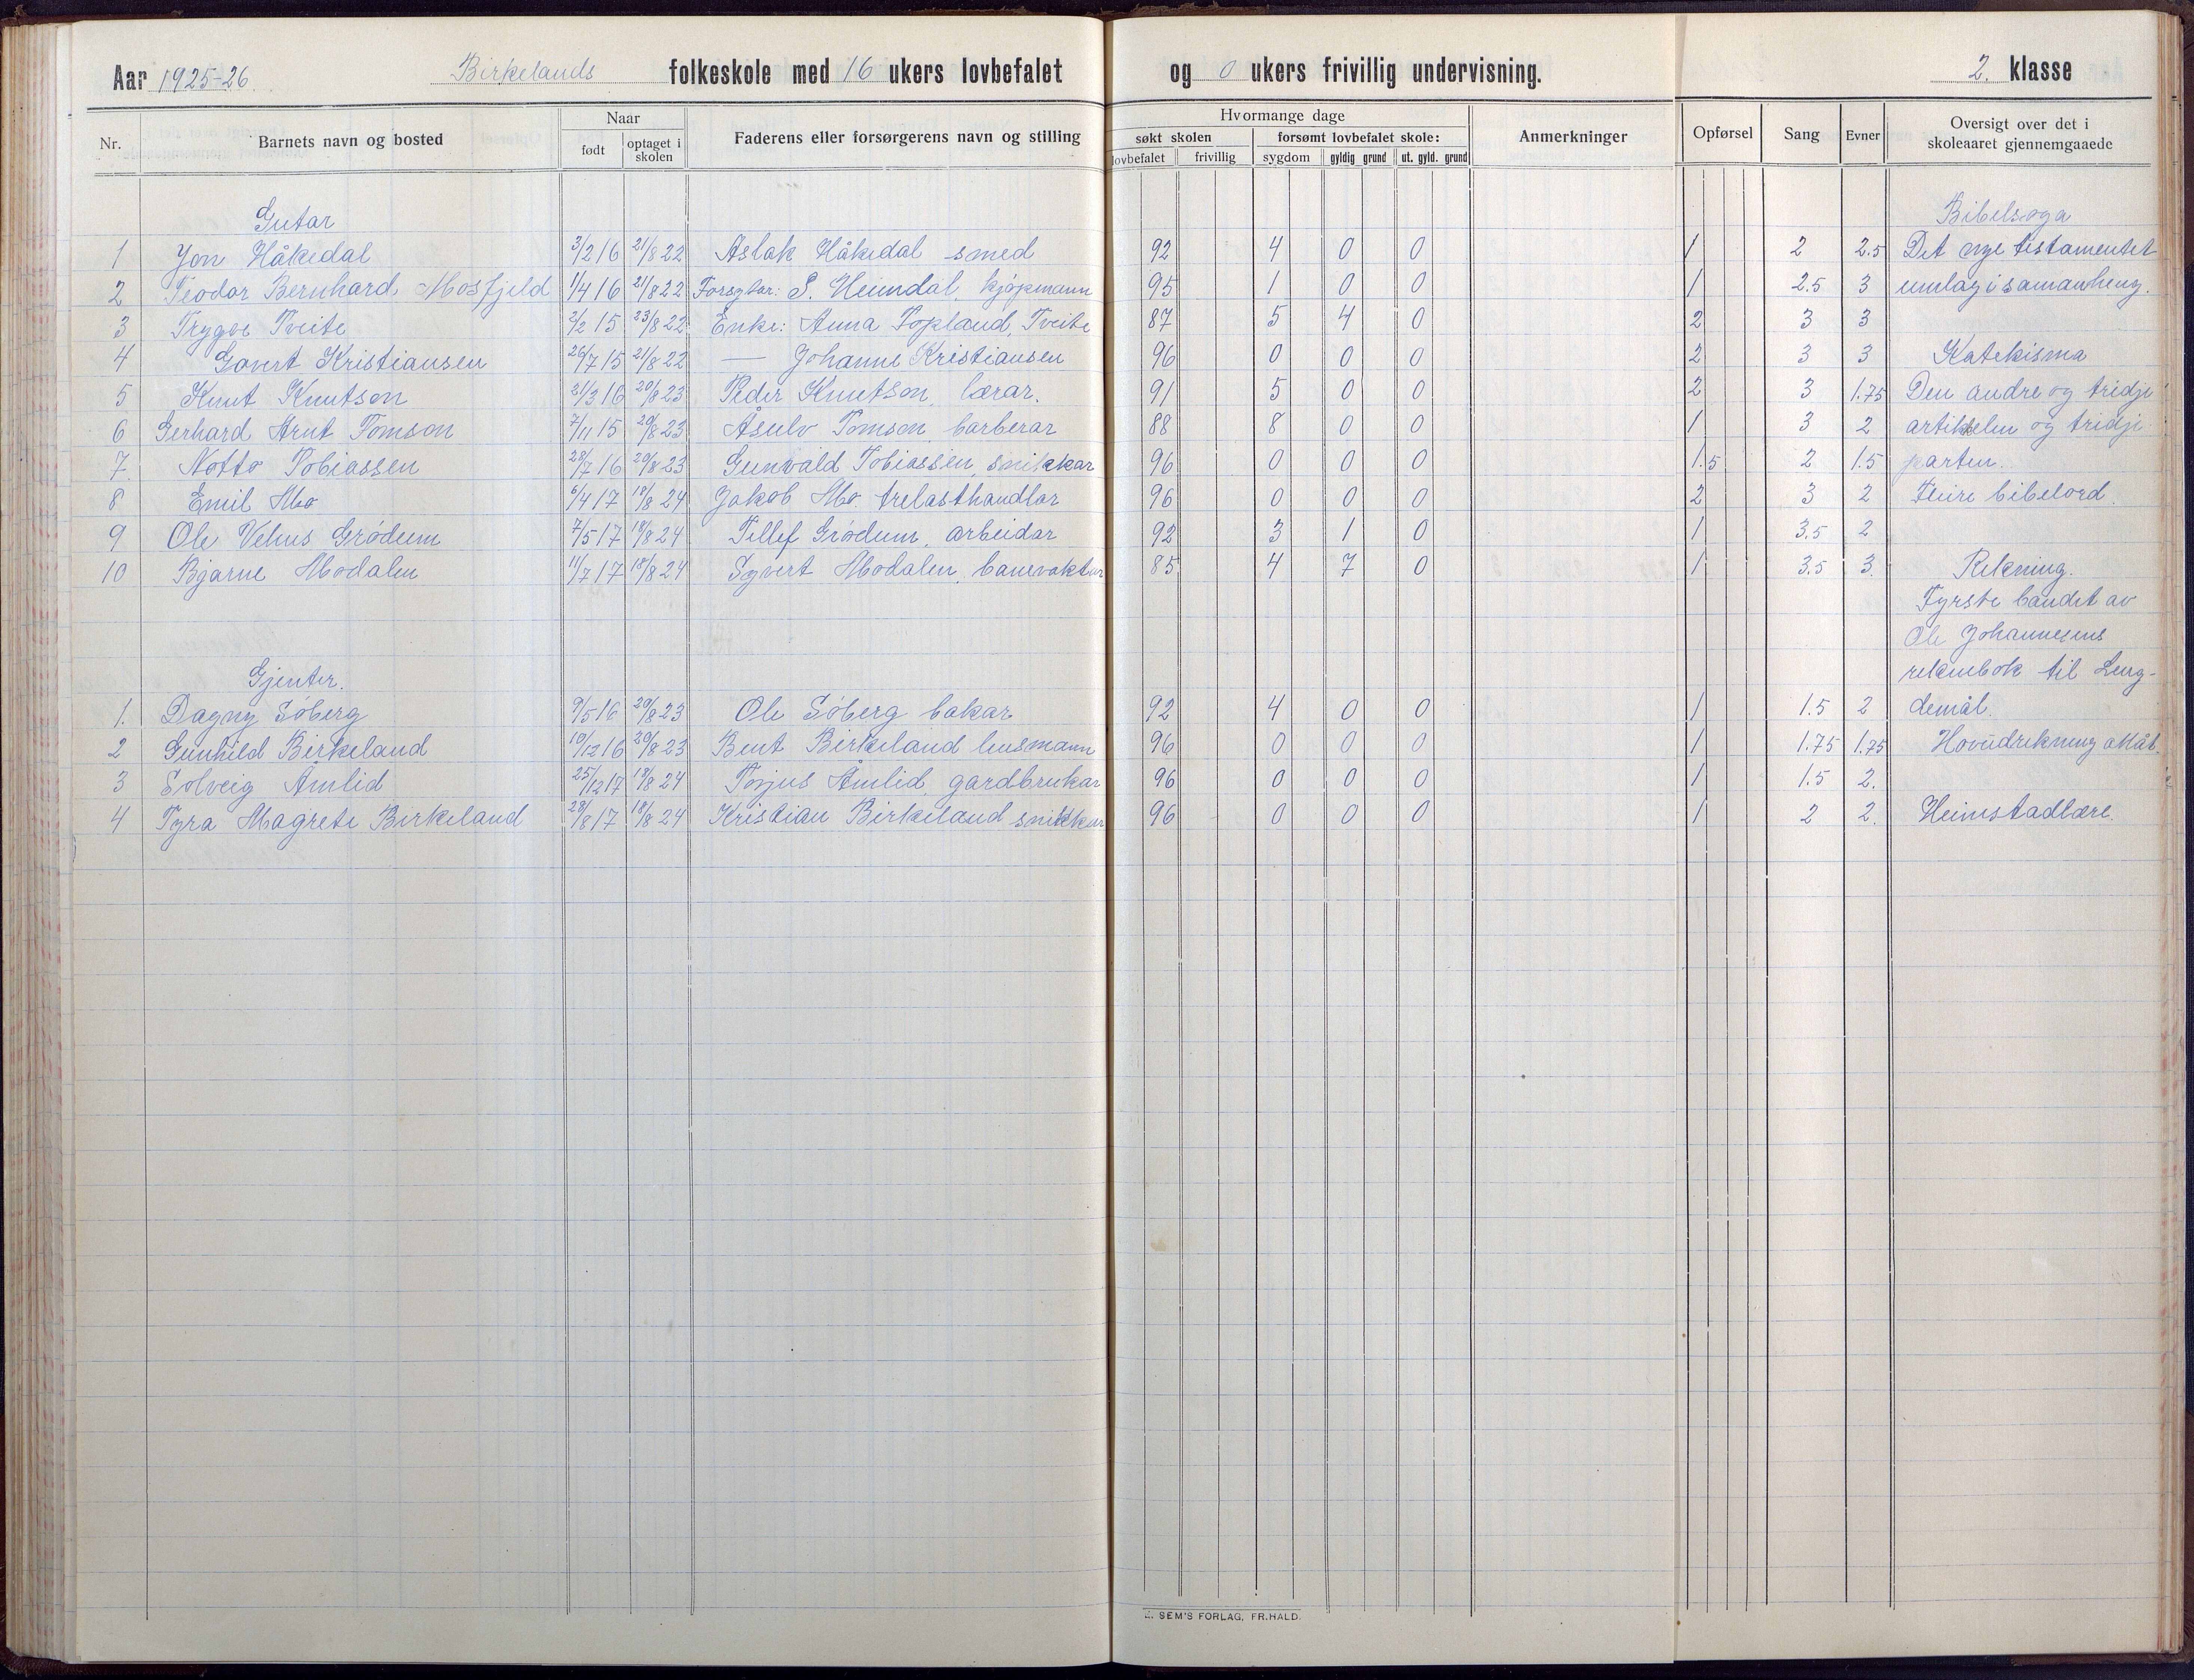 Aar 1925-26. Birkelands folkeskole med 16 ukers lovbefalet og 0 ukers frivillig undervisning. 2. klasse
Nr. Barnets navn og bosted Naar født optaget i skolen Faderens eller forsørgerens navn og stilling Hvormange dage søkt skolen lovbefalet frivillig forsømt lovbefalet skole: sygdom gyldig grund ut. gyld. grund Anmerkninger Opførsel Sang Evner Oversigt over det i skoleaaret gjennemgaaede
Gutar Bibelsoga
1 Jon Håkedal 3/2 16 21/8 22 Aslak Håkedal smed 92 4 0 0 1 2 2.5 Det nye testamentet
2 Teodor Bernhard Mosfjeld 1/4 16 21/8 22 Forsytar: S. Heimdal, kjøpmann 95 1 0 0 1 2.5 3 umlag i samanheng.
3 Trygve Tveite 2/2 15 23/8 22 Enke: Anna Topland, Tveite 87 5 4 0 2 3 3
4 Govert Kristiansen 26/7 15 21/8 22 — Johanne Kristiansen 96 0 0 0 2 3 3 Katekisma
5 Knut Knutson 21/3 16 20/8 23 Peder Knutson, lærar. 91 5 0 0 2 3 1.75 Den andre og tridje
6 Gerhard Arnt Tomson 7/11 15 20/8 23 Åsulv Tomson, barberar 88 8 0 0 1 3 2 artikkelen og tridje
7. Notto Tobiassen 28/7 16 20/8 23 Gunvald Tobiassen, snikkar 96 0 0 0 1.5 2 1.5 parten.
8 Emil Mo 6/4 17 18/8 24 Jakob Mo. trelasthandlar 96 0 0 0 2 3 2 Fleire bibelord.
9 Ole Vehus Grødum 7/5 17 18/8 24 Tellef Grødum, arbeidar 92 3 1 0 1 3.5 2
10 Bjarne Modalen 11/7 17 18/8 24 Syvert Modalen, banevaktar 85 4 7 0 1 3.5 3. Rekning.
Fyrste bandet av
Ole Johannesens
reknebok til Leng-
Gjenter.
1. Dagny Søberg 9/5 16 20/8 23 Ole Søberg bakar 92 4 0 0 1 1.5 2 demål.
2 Gunhild Birkeland 10/12 16 20/8 23 Bent Birkeland lensmann 96 0 0 0 1 1.75 1.75 Hovudrekning attåt.
3 Solveig Åmlid 25/12 17 18/8 24 Torjus Åmlid, gardbrukar 96 0 0 0 1 1.5 2.
4 Tyra Magrete Birkeland 28/8 17 18/8 24 Kristian Birkeland snikkar 96 0 0 0 1 2 2. Heimstadlære.
SEM'S FORLAG, FR.HALD.